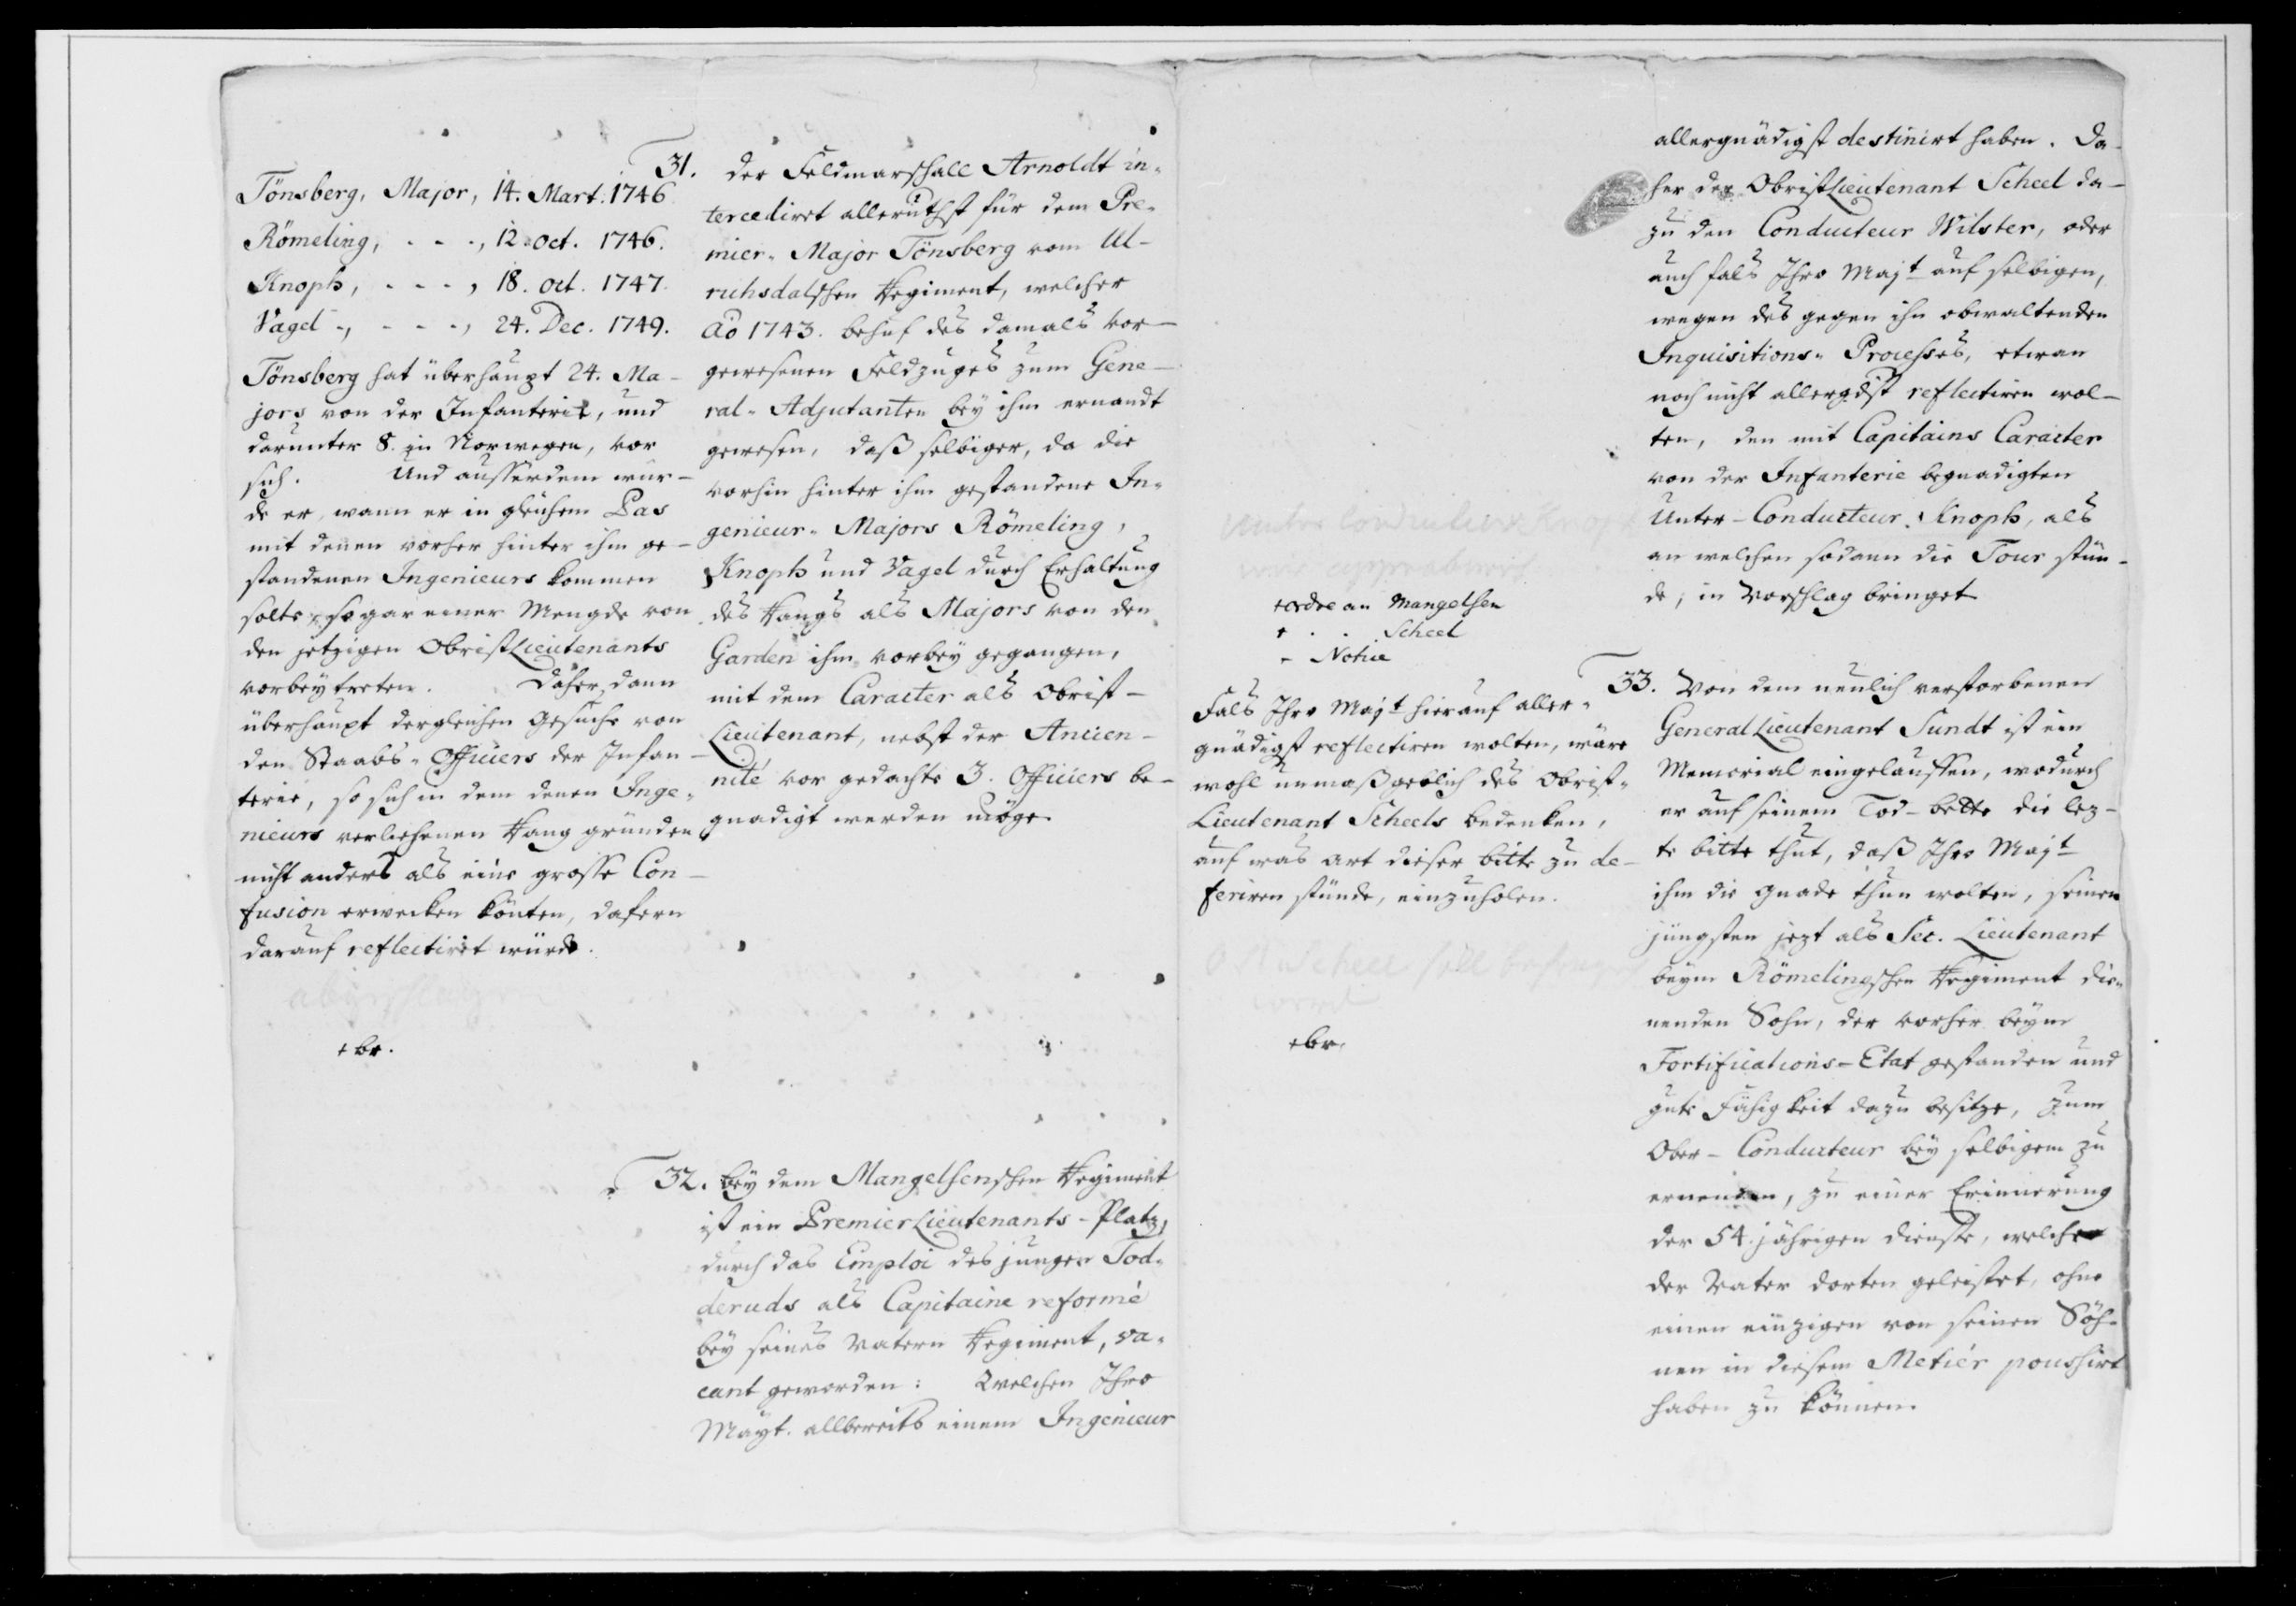 Tönsberg, Major, 14. Mart. 1746
Römeling, - - -, 12. oct. 1746.
Knoph, - - -, 18. oct. 1747.
Vagel -, - - -, 24. Dec. 1749.
Tönsberg hat überhaupt 24. Ma-
jors von der Infanterie, und
darunter 8. in Norwegen, vor
sich. Und ausserdem wür-
de er, wann er in gleichem Pas
mit denen vorher hinter ihm ge-
standenen Ingenieurs kommen
solte, sogar einer Mengde von
den jetzigen ObristLieutenants
vorbey treten. Daher dann
überhaupt dergleichen Gesuche von
den Staabs-Officiers der Infan-
terie, so sich in dem denen Inge-
nieurs verliehenen Rang gründen
nicht anders als eine grosse Con-
fusion erwecken könten, dafern
darauf reflectiret würde.
abgeschlagen
br.
31. der Feldmarschall Arnoldt in-
tercediret allerunthst für dem Pre-
mier-Major Tönsberg vom Ul-
richsdalschen Regiment, welcher
Aō 1743. behuf des damals vor-
gewesenen Feldzuges zum Gene-
ral-Adjutanten bey ihm ernandt
gewesen, daß selbiger, da die
vorhin hinter ihm gestandene In-
genieur-Majors Römeling,
Knoph und Vagel durch Erhaltung
des Rangs als Majors von den
Garden ihm vorbey gegangen,
mit dem Caracter als Obrist-
Lieutenant, nebst der Ancien-
nité vor gedachte 3. Officiers be-
gnadigt werden möge.
32. bey dem Mangelsenschen Regiment
ist ein PremierLieutenants-Platz,
durch das Emploi des jungen Tod-
deruds als Capitaine reformé
bey seines Vatern Regiment, va-
cant geworden: Welchen Ihro
Mayt. allbereits einem Ingenieur
allergnädigst destinirt haben. Da-
her der ObristLieutenant Scheel da-
zu den Conducteur Wilster, oder
auch fals Ihro Majt auf selbigen,
wegen des gegen ihn obwaltenden
Inquisitions-Processes, etwan
noch nicht allergdst reflectiren wol-
ten, den mit Capitains Caracter
von der Infanterie begnadigten
Unter-Conducteur Knoph, als
an welchen sodann die Tour stün-
de, in Vorschlag bringet
Unter Conducteur Knoph
wird approbiret
ordre an Mangelsen
- - Scheel
- Notice
33. Von dem neulich verstorbenen
GeneralLieutenant Sundt ist ein
Memorial eingelauffen, wodurch
er auf seinem Tod-bette die lez-
te bitte thut, daß Ihro Majt
ihm die Gnade thun wolten, seinen
jüngsten jezt als Sec. Lieutenant
beym Römelingschen Regiment die-
nenden Sohn, der vorher beym
Fortifications-Etat gestanden und
gute Fähigkeit dazu besitze, zum
Ober-Conducteur bey selbigem zu
ernennen, zu einer Erinnerung
der 54. jährigen dienste, welche
der Vater dorten geleistet, ohne
einen einzigen von seinen Söh-
nen in diesem Metiér poussirt
haben zu können.
Fals Ihro Majt hierauf aller-
gnädigst reflectiren wolten, wäre
wohl unmaßgeblich des Obrist-
Lieutenant Scheels bedenken,
auf was art dieser bitte zu de-
feriren stünde, einzuholen.
Scheel soll befragt
werd
br.